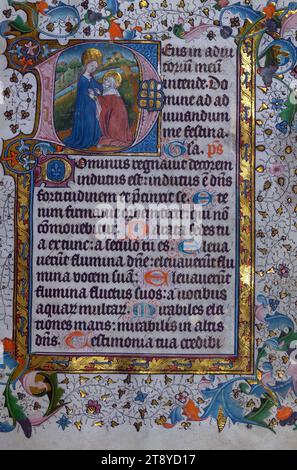 Deus in adiu
torium meū
intende. Do
mine ad ad
iuuandum
me festina
Gla. ps
Dominus regnauit decorem
indutus est: indutus ē dn̄s
fortitudinem et precinxit se. Et
enim firmauit orbem terre: qui nō
commouebitur. Parata sedes tu
a ex tunc: a seculo tu es. Eleua
uerunt flumina dn̄e: eleuauerūt flu
mina vocem suā. Eleuauerunt
flumina fluctus suos: a uocibus
aquarū multarū. Mirabiles ela
tiones maris: mirabilis in altis
dn̄s. Testimonia tua credibi
alamy
Image ID: 2T92YD7
www.alamy.com